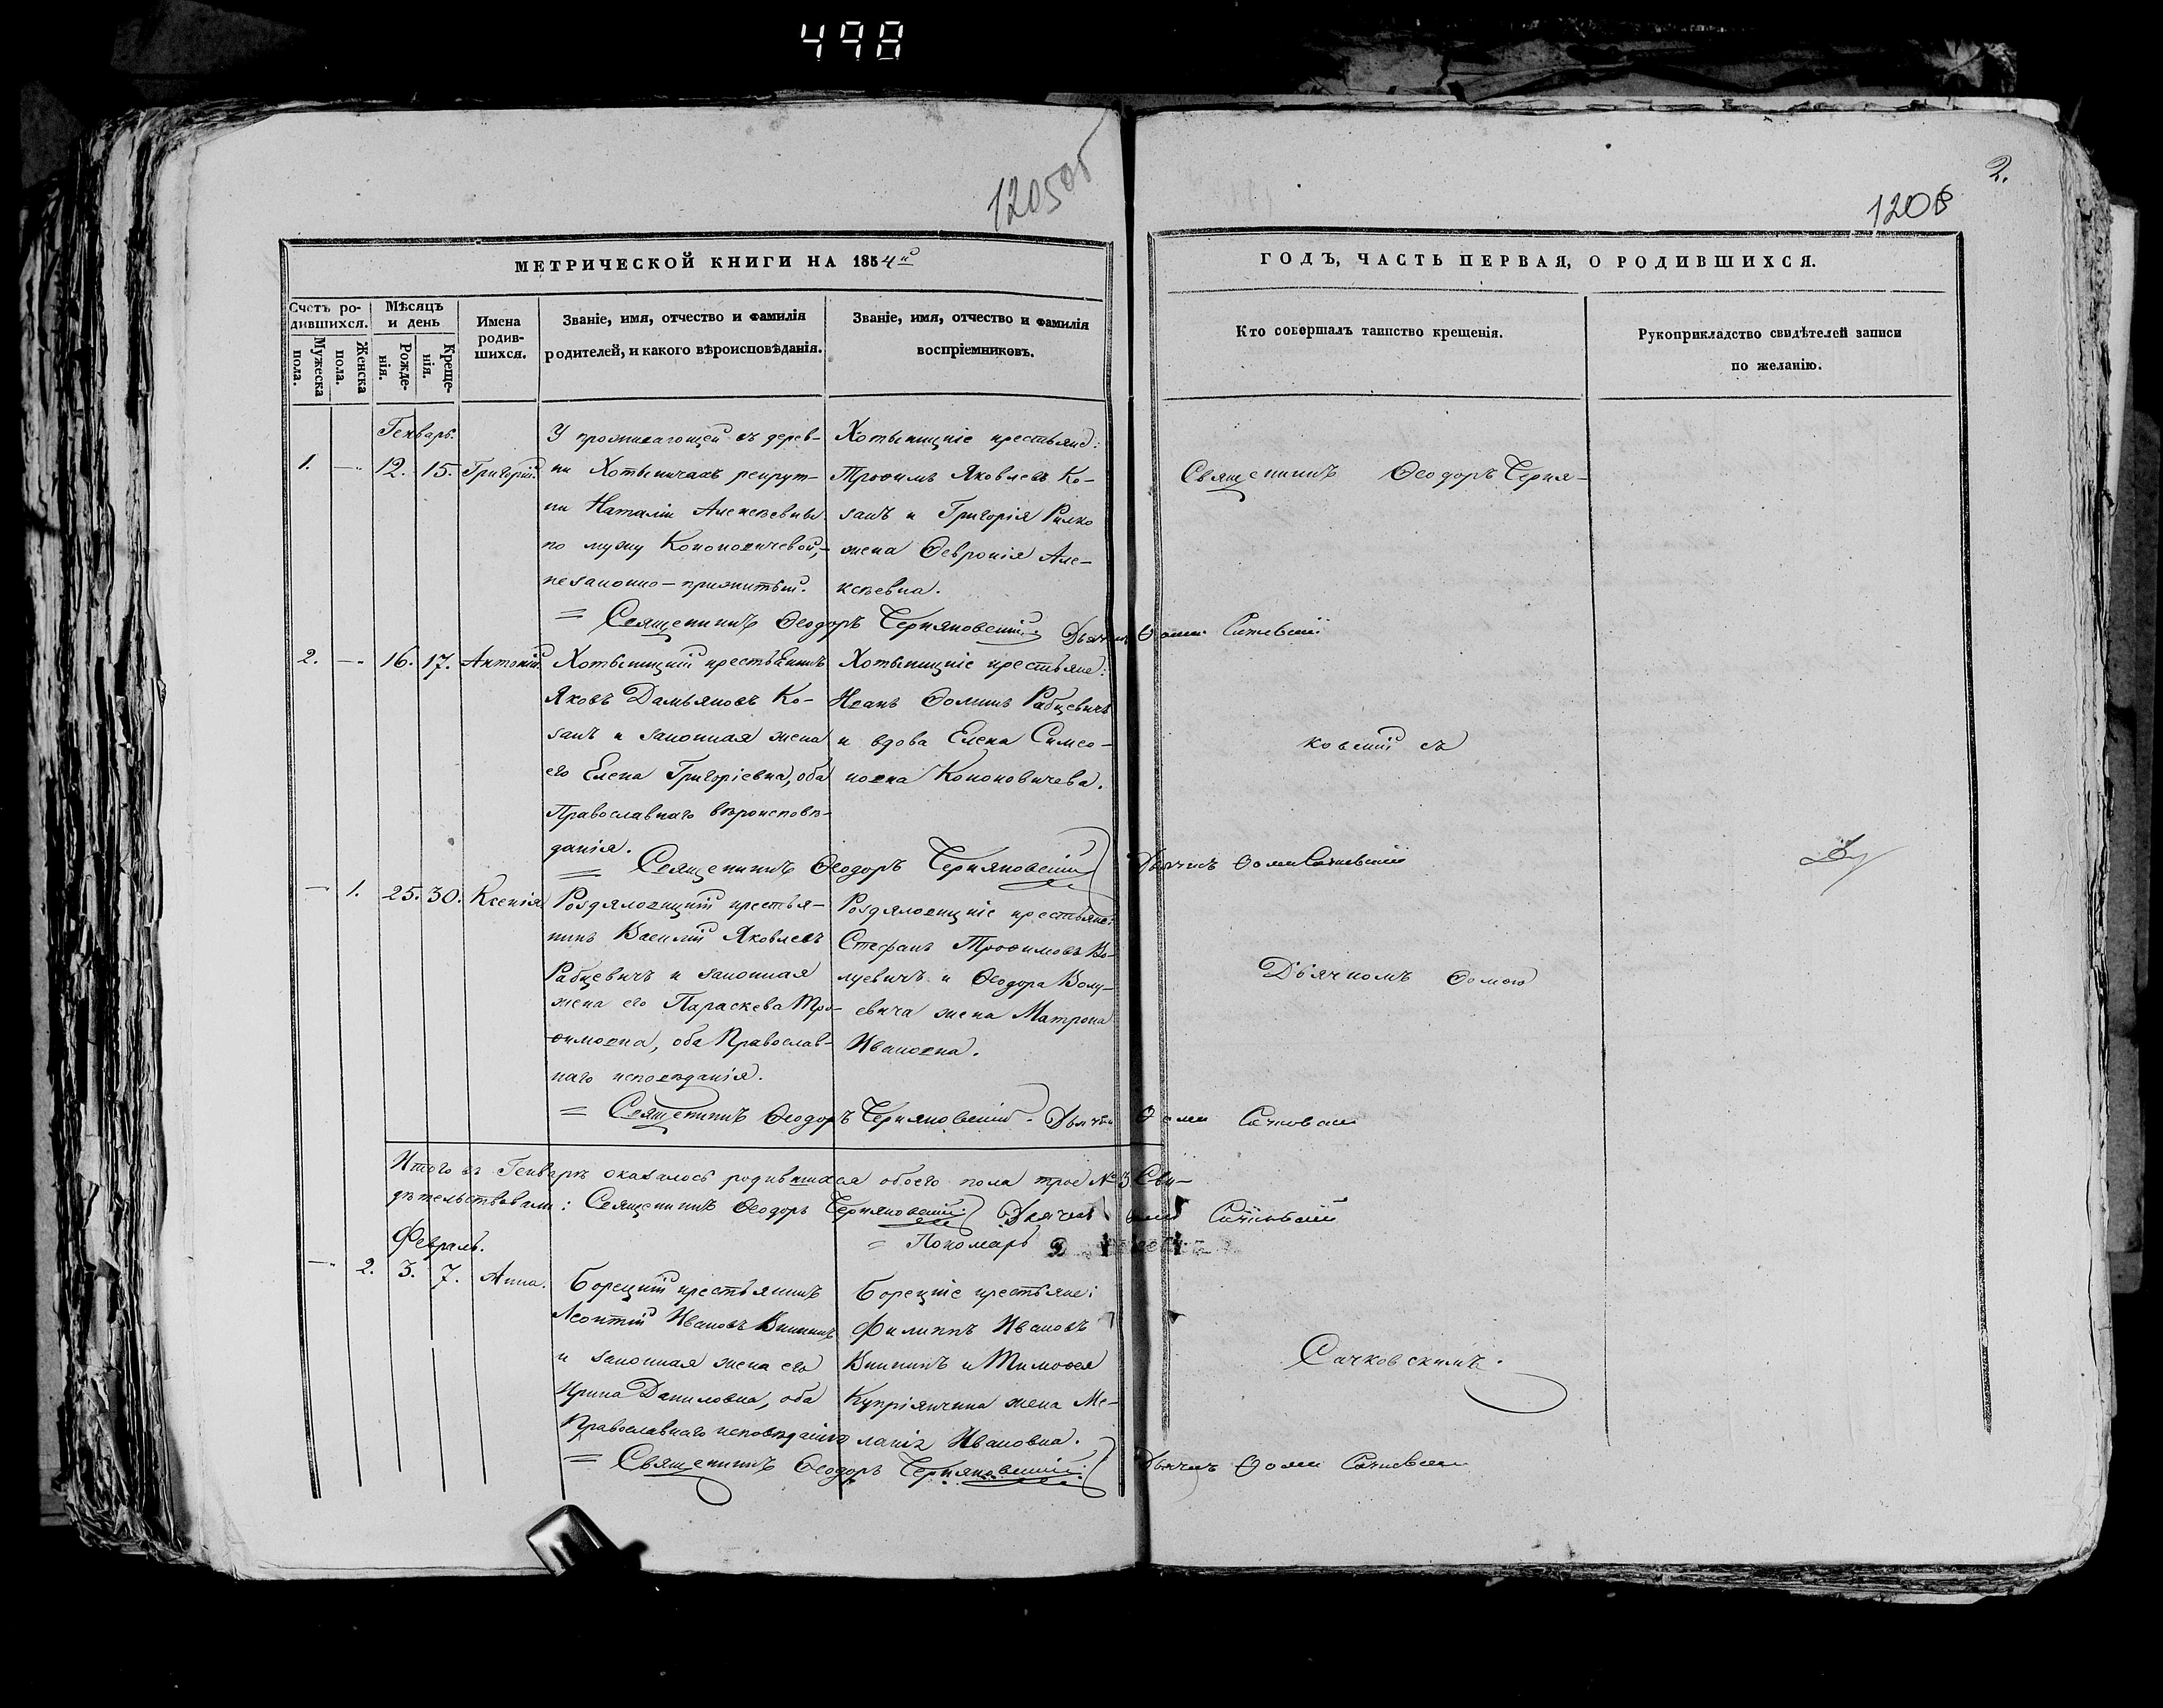 498
120505
2.
1206
МЕТРИЧЕСКОЙ КНИГИ НА 1854й
ГОДЪ, ЧАСТЬ ПЕРВАЯ, О РОДИВШИХСЯ.
Счетъ ро-
дившихся.
Мужеска
пола.
Женска
пола.
Мѣсяцъ
и день
Рожде-
нія.
Креще-
нія.
Имена
родив-
шихся.
Званіе, имя, отчество и фамилія
родителей, и какого вѣроисповѣданія.
Званіе, имя, отчество и фамилія
воспріемниковъ.
Кто совершалъ таинство крещенія.
Рукоприкладство свидѣтелей записи
по желанію.
Генварь.
1. — 12. 15. Григорій.
У проживающей въ дерев-
ни Хотыничахъ рекрут-
ки Наталіи Алексѣевны
по мужу Кононовичевой,-
незаконно-прижитый.
Хотыницкіе крестьяне:
Трофимъ Яковлевъ Ко-
занъ и Григорія Рилко
жена Ѳевронія Але-
ксѣевна.
= Священникъ Ѳеодоръ Черняковскій. Дьячекъ Ѳома Сачковскій
2. — 16. 17. Антоній.
Хотыницкій крестьянинъ
Яковъ Дамьяновъ Ко-
занъ и законная жена
его Елена Григоріевна, оба
Православнаго вѣроисповѣ-
данія.
Хотыницкіе крестьяне:
Иванъ Ѳоминъ Рабцевичъ
и вдова Елена Симео-
новна Кононовичева.
= Священникъ Ѳеодоръ Черняковскій Дьячекъ Ѳома Сачковскій
— 1. 25. 30. Ксенія
Роздяловицкій крестья-
нинъ Василій Яковлевъ
Рабцевичъ и законная
жена его Параскева Тро-
фимовна, оба Православ-
наго исповѣданія.
Роздяловицкіе крестьяне:
Стефанъ Трофимовъ Во-
луевичъ и Ѳеодора Волу-
евича жена Матрона
Ивановна.
= Священникъ Ѳеодоръ Черняковскій. Дьячекъ Ѳома Сачковскій
Итого въ Генварѣ оказалось родившихся обоего пола трое № 3. Сви-
дѣтельствовали: Священникъ Ѳеодоръ Черняковскій Дьячекъ Ѳома Сачковскій
= Пономарь
Февраль.
— 2. 3. 7. Анна.
Борецкій крестьянинъ
Леонтій Ивановъ
и законная жена его
Ирина Даниловна, оба
Православнаго исповѣданія
Борецкіе крестьяне:
Филиппъ Ивановъ
и Тимофея
Купріянчика жена Ме-
ланія Ивановна.
= Священникъ Ѳеодоръ Черняковскій Дьячекъ Ѳома Сачковскій
Священникъ Ѳеодоръ Черня-
ковскій съ
Дьячкомъ Ѳомою
Сачковскимъ.